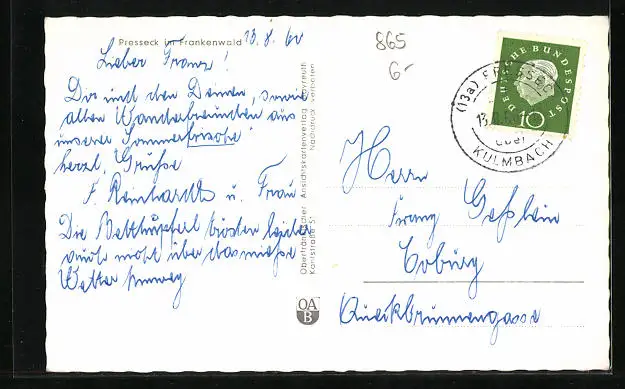 Presseck im Frankenwald
13.8.60
Lieber Franz!
Dir und den Deinen, sowie
allen Wanderfreunden aus
unserer Sommerfrische
herzl. Grüße
F. Reinhardt u. Frau
Die Betthupferl trösten leider
auch nicht über das miese
Wetter hinweg
865
6.-
Oberfränkischer Ansichtskartenverlag Bayreuth
Nachdruck verboten
OA
B
DEUTSCHE BUNDESPOST
10
(13a) PRESSECK
über
KULMBACH
Herrn
Franz Geßlein
Coburg
Queckbrunnengasse